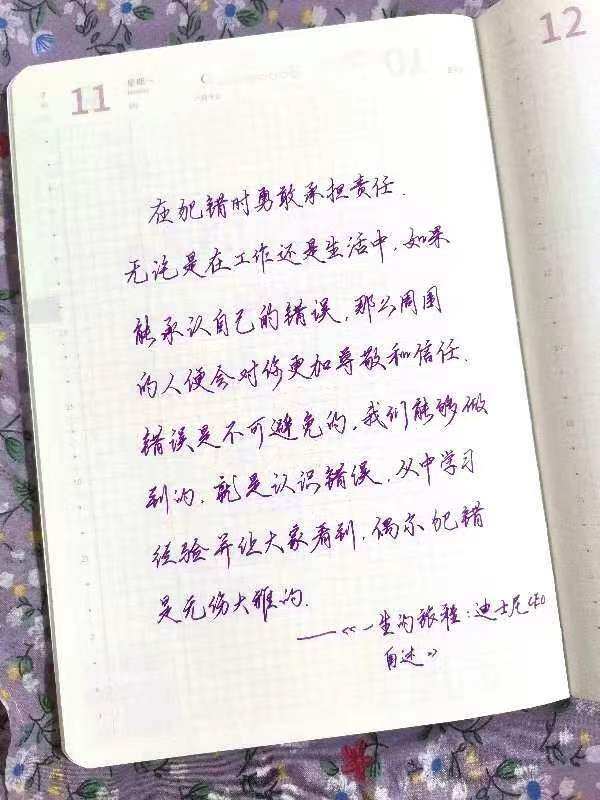 11
星期一
12
在犯错时勇敢承担责任.
无论是在工作还是生活中,如果
能承认自己的错误,那么周围
的人便会对你更加尊敬和信任.
错误是不可避免的,我们能够做
到的,就是认识错误,从中学习
经验并让大家看到,偶尔犯错
是无伤大雅的.
——《一生的旅程:迪士尼CEO
自述》